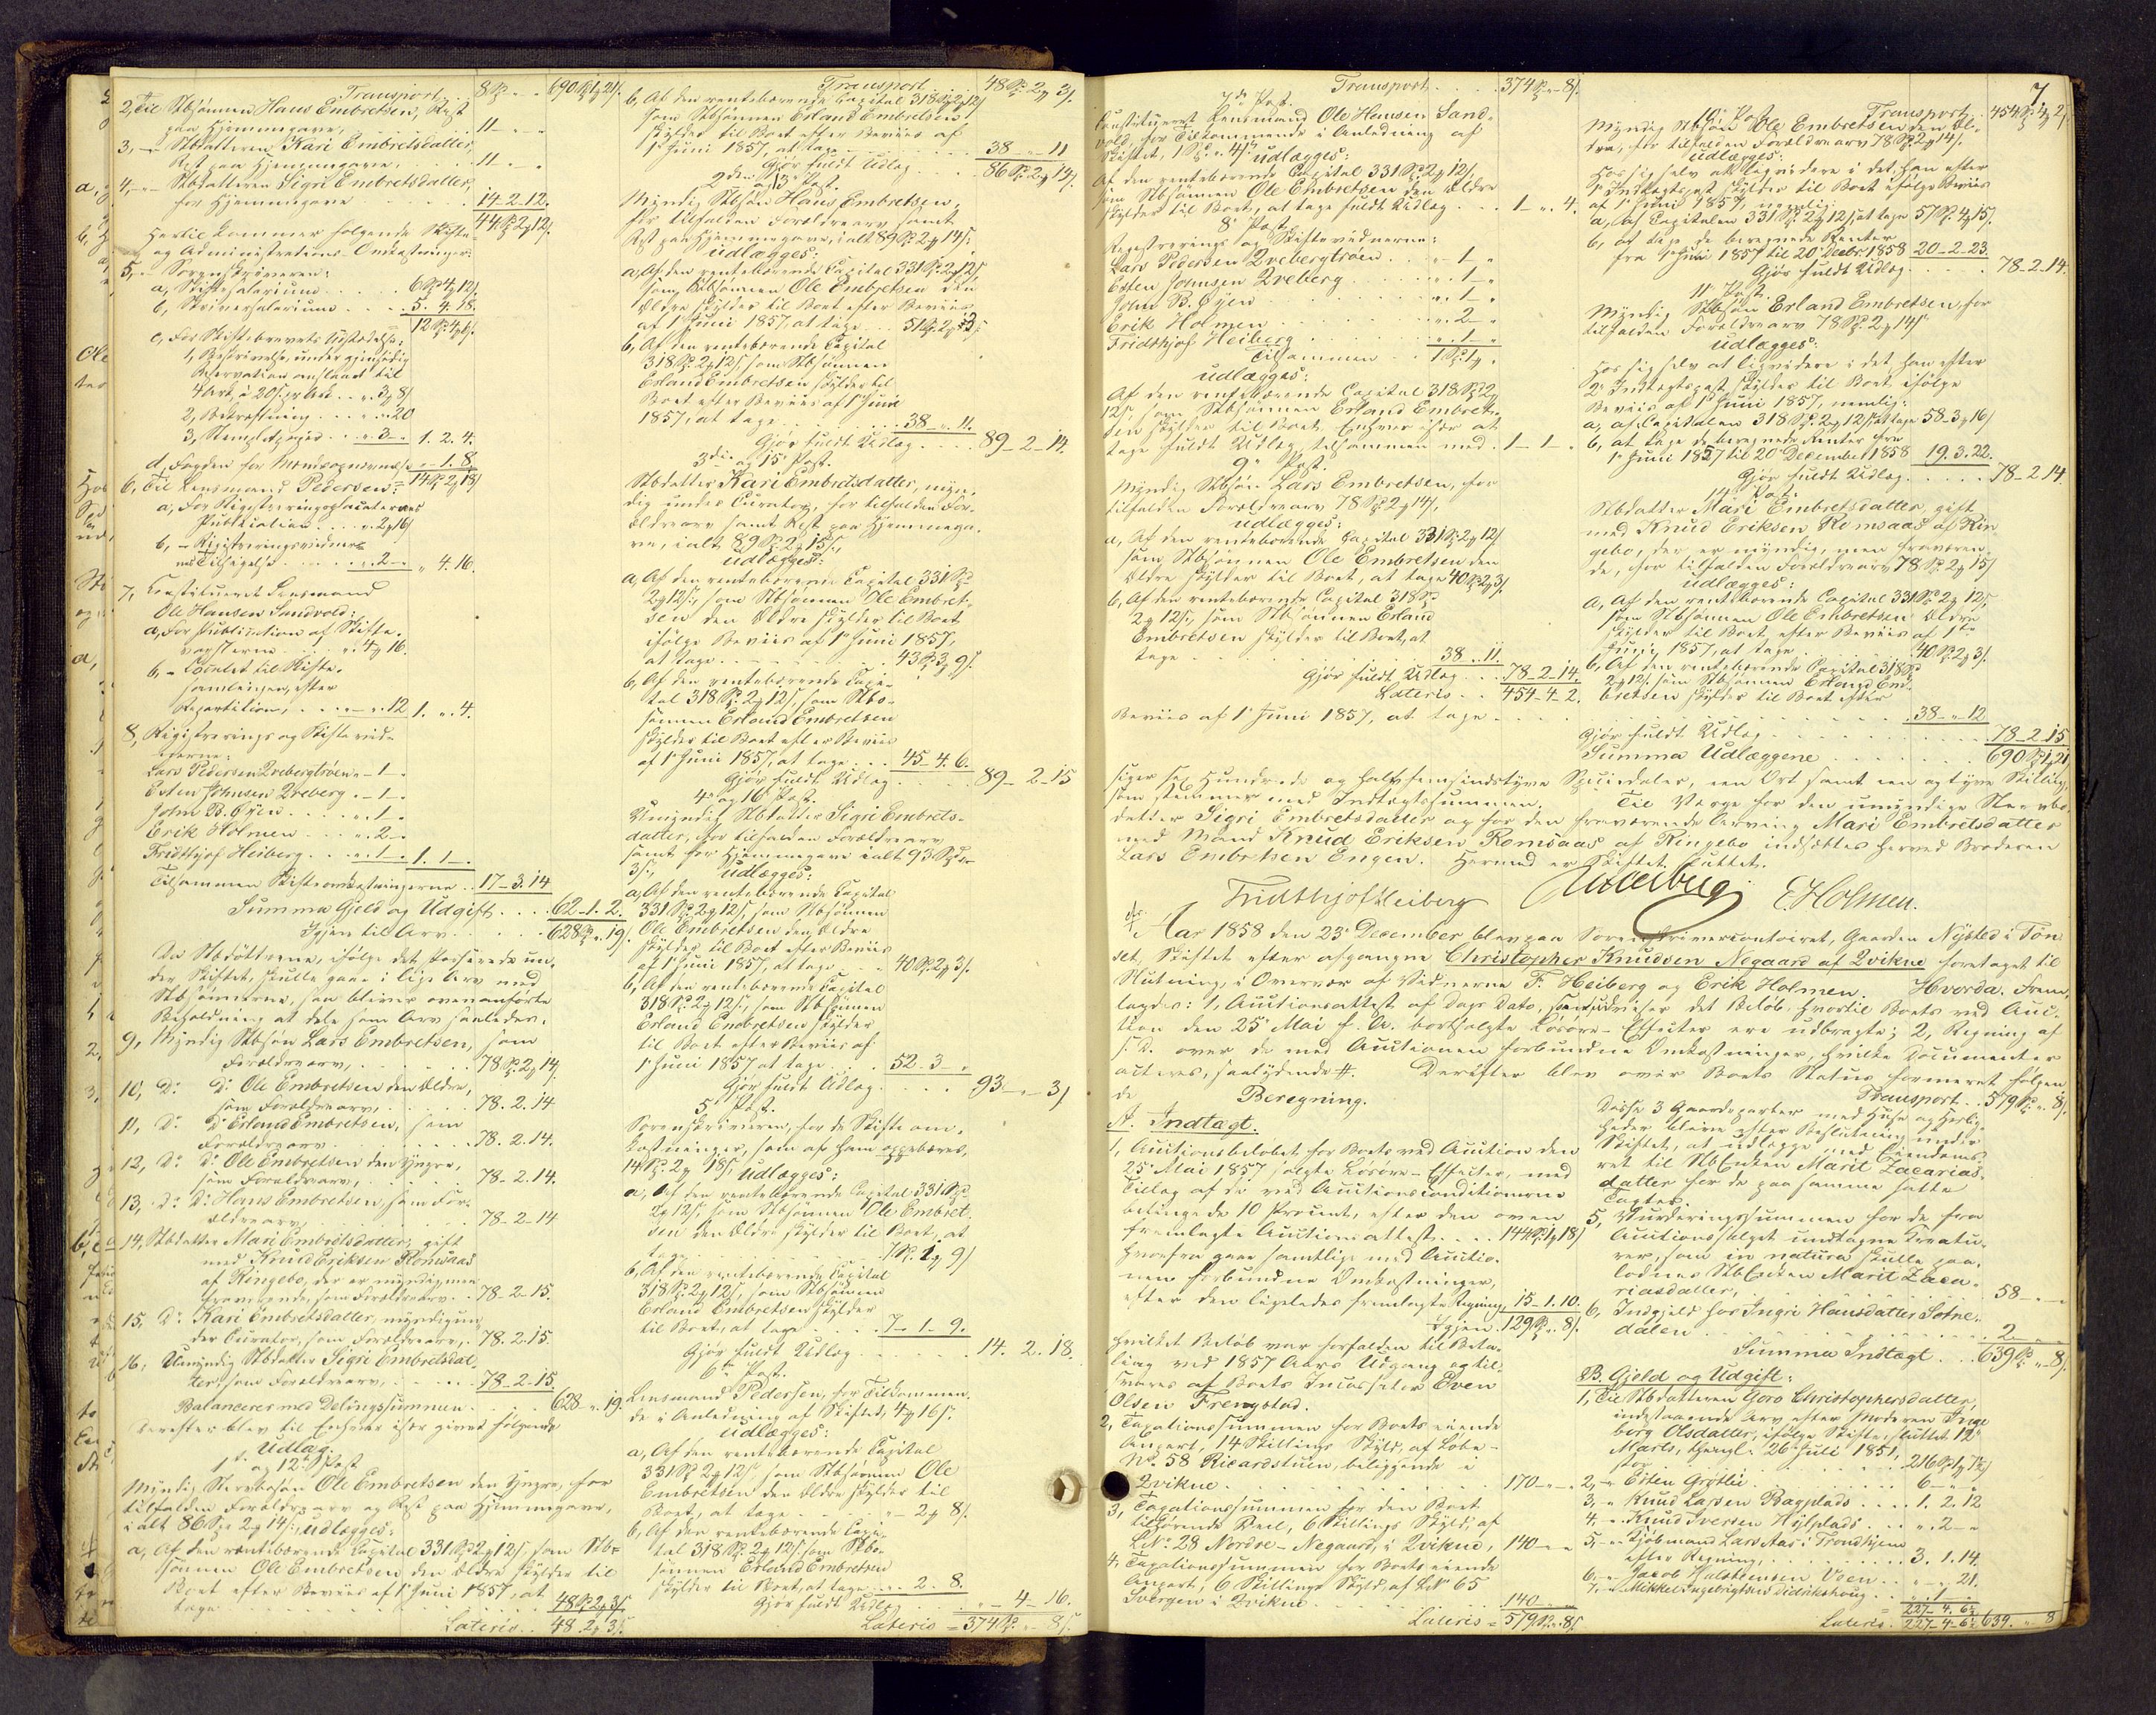 Transport . . 8 Sp. „ „ 690 Sp. 1 ƴ 21 ſ.
2, Til Stbsønnen Hans Embretsen, Rest
paa Hjemmegave, . . . . 11 „ „
3, „ Stbdatteren Kari Embretsdatter,
Rest paa Hjemmegave, . . . 11 „ „
4, „ Stbdatteren Sigri Embretsdatter,
for Hjemmegave . . . . 14. 2. 12.
44 Sp. 2 ƴ 12 ſ.
Hertil kommer følgende Skifte-
og Administrations-Omkostninger:
5, Sorenskriveren:
a, Skiftesalarium . . . . 6 Sp. 4 ƴ 12 ſ.
b, Skriversalarium . . . . 5. 4. 18.
12 Sp. 4 ƴ 6 ſ.
c, For Skiftebrevets Udstedelse:
1, Beskrivelse, under gjensidig
Reservation anslaaet til
4 Ark à 20 ſ. pr. Ark . . „ 3 ƴ 8 ſ
2, Bekræftning . . . „ „ 20
3, Stemplet papir . . . „ 3 „ 1. 2. 4.
d, Fogden for Mændsopnævnelse „ 1. 8.
= 14 Sp. 2 ƴ 18 ſ
6, Til Lensmand Pedersen:
a, For Registreringsplacaternes
Publication . . . „ 2 ƴ 16 ſ
b, „ Registreringsvidnernes Tilsigelse . . . . „ 2 „ „ 4. 16.
7, Constitueret Lensmand
Ole Hansen Sandvold:
a, For Publication af Skifte-
varslerne . . . . „ 4 ƴ 16.
b, „ Bomled til Skifte-
samlingen, efter
Repartition, . . . „ „ 12 1. „ 4.
8, Registrerings og Skiftevid-
nerne:
Lars Pedersen Qvebergtrøen „ 1 „
Esten Johnsen Qveberg . „ 1 „
John B. Øyen . . . . „ 1 „
Erik Holmen . . . „ 2 „
Fridthjof Heiberg . . . „ 1 „ 1. 1 „
Tilsammen Skifteomkostningerne . . 17 – 3. 14
Summa Gjeld og Udgift . . . . 62 – 1. 2.
Igjen til Arv . . . . . 628 Sp. „ 19 ſ.
Da Stbdøttrene, ifølge det Passerede un-
der Skiftet, skulle gaae i lige Arv med
Stbsønnerne, saa bliver ovenanførte
Beholdning at dele som Arv saaledes:
9, Myndig Stbsøn Lars Embretsen, som
Forældrearv, . . . . . 78 Sp. 2 ƴ 14.
10, Do. Do. Ole Embretsen den Ældre,
som Forældrearv, . . . . 78. 2. 14
11, Do. Do. Erland Embretsen, som
Forældrearv . . . . . 78. 2. 14.
12, Do. Do. Ole Embretsen den Yngre,
som Forældrearv, . . . . 78. 2. 14.
13, Do. Do. Hans Embretsen, som For-
ældrearv, . . . . . 78 – 2 – 14
14, Stbdatter Mari Embretsdatter, gift
med Knud Eriksen Romsaas
af Ringebo, der er myndig, men
fraværende, som Forældrearv . . 78 – 2 – 15.
15, Do. Kari Embretsdatter, myndig un-
der Curator, som Forældrearv, . 78. 2. 15
16, Umyndig Stbdatter Sigri Embretsdat-
ter, som Forældrearv, . . . 78 – 2 – 15.
Balancerer med Delingssummen . . . 628 „ 19.
Derefter blev til Enhver især givet følgende
Udlæg:
1ste og 12te Post
Myndig Stervbosøn Ole Embretsen den Yngre, for
tilfalden Forældrearv og Rest paa Hjemmegave,
i alt 86 Sp. 2 ƴ 14 ſ., udlægges:
a, Af den rentebærende Capital 331 Sp. 2 ƴ 12 ſ., som Stb-
sønnen Ole Embretsen den Ældre skylder til
Boet efter Beviis af 1 Juni 1857, at
tage . . . . . . . 48 Sp. 2 ƴ 3 ſ
Lateris . . 48. 2 ƴ 3 ſ.
Transport . . 48 Sp. 2 ƴ 3 ſ.
b, Af den rentebærende Capital 318 Sp. 2 ƴ 12 ſ
som Stbsønnen Erland Embretsen
skylder til Boet efter Beviis af
1 Juni 1857, at tage . . . . . 38 „ 11
Gjør fuldt Udlæg . . . 86 Sp. 2 ƴ 14 ſ.
2den og 13 Post.
Myndig Stbsøn Hans Embretsen,
for tilfalden Forældrearv samt
Rest paa Hjemmegave, i alt 89 Sp. 2 ƴ 14 ſ.
udlægges:
a, Af den rentebærende Capital 331 Sp. 2 ƴ 12 ſ
som Stbsønnen Ole Embretsen den
Ældre skylder til Boet efter Beviis
af 1 Juni 1857, at tage . . 51 Sp. 2 ƴ 3 ſ
b, Af den rentebærende Capital
318 Sp. 2 ƴ 12 ſ, som Stbsønnen
Erland Embretsen skylder til
Boet efter Beviis af 1 Juni
1857, at tage . . . . . 38 „ 11.
Gjør fuldt Udlæg . . . 89 – 2 – 14.
3die og 15 Post.
Stbdatter Kari Embretsdatter, myn-
dig under Curator, for tilfalden For-
ældrearv samt Rest paa Hjemmega-
ve, i alt 89 Sp. 2 ƴ 15 ſ.,
udlægges:
a, Af den rentebærende Capital 331 Sp.
2 ƴ 12 ſ., som Stbsønnen Ole Embret-
sen den Ældre skylder til Boet
ifølge Beviis af 1 Juni 1857,
at tage . . . . . . 43 Sp. 3 ƴ 9 ſ.
b, Af den rentebærende Capi-
tal 318 Sp. 2 ƴ 12 ſ, som Stb-
sønnen Erland Embretsen
skylder til Boet efter Beviis
af 1 Juni 1857, at tage . . . 45 – 4. 6.
Gjør fuldt Udlæg . . . 89 – 2 – 15
4 og 16 Post.
Umyndig Stbdatter Sigri Embrets-
datter, for tilfalden Forældrearv
samt for Hjemmegave i alt 93 Sp. „
3 ſ., udlægges:
a, Af den rentebærende Capital
331 Sp. 2 ƴ 12 ſ, som Stbsønnen
Ole Embretsen den Ældre
skylder til Boet efter Beviis
af 1 Juni 1857, at tage . . . 40 Sp. 2 ƴ 3 ſ.
b, Af den rentebærende Capital
318 Sp. 2 ƴ 12 ſ, som Stbsønnen
Erland Embretsen skylder
til Boet efter Beviis af
1 Juni 1857 at tage . . . 52 – 3 „
Gjør fuldt Udlæg . . . 93 „ 3 ſ
5 Post.
Sorenskriveren, for de Skifteom-
kostninger, som af ham oppebæres,
14 Sp. 2 ƴ 18 ſ, udlægges:
a, Af den rentebærende Capital 331 Sp.
2 ƴ 12 ſ, som Stbsønnen Ole Embret-
sen den Ældre skylder til Boet, at
tage . . . . . . . 7 Sp. 1 ƴ 9 ſ
b, Af den rentebærende Capital
318 Sp. 2 ƴ 12 ſ, som Stbsønnen
Erland Embretsen skylder
til Boet, at tage . . . . . 7 – 1 – 9.
Gjør fuldt Udlæg . . . . 14. 2. 18.
6te Post.
Lensmand Pedersen, for Tilkommen-
de i Anledning af Skiftet, 4 ƴ 16 ſ.
udlægges:
a, Af den rentebærende Capital
331 Sp. 2 ƴ 12 ſ, som Stbsønnen Ole
Embretsen den Ældre skylder til
Boet, at tage . . . . . „ – 2 ƴ 8 ſ.
b, Af den rentebærende Capi-
tal 318 Sp. 2 ƴ 12 ſ, som Stb-
sønnen Erland Embretsen
skylder til Boet, at tage . . „ 2. 8.
Gjør fuldt Udlæg . . „ – 4 – 16.
Lateris = 374 Sp. „ 8 ſ.
Transport . . . . 374 Sp. „ 8 ſ.
7de Post.
Constitueret Lensmand Ole Hansen Sand-
vold, for Tilkommende i Anledning af
Skiftet, 1 Sp. „ 4 ſ.
udlægges:
Af den rentebærende Capital 331 Sp. 2 ƴ 12 ſ,
som Stbsønnen Ole Embretsen den Ældre
skylder til Boet, at tage fuldt Udlæg . . . 1 – „ 4.
8 Post.
Registrerings og Skiftevidnerne:
Lars Pedersen Qvebergtrøen . . . „ 1 „
Esten Johnsen Qveberg . . . „ 1 „
John B. Øyen . . . . . „ 1 „
Erik Holmen . . . . . „ 2 „
Fridthjof Heiberg . . . . „ 1 „
Tilsammen . . 1 Sp. 1 ƴ „
udlægges:
Af den rentebærende Capital 318 Sp. 2 ƴ
12 ſ, som Stbsønnen Erland Embret-
sen skylder til Boet, Enhver især at
tage fuldt Udlæg, tilsammen med . . 1 – 1 – „
9 Post.
Myndig Stbsøn Lars Embretsen, for
tilfalden Forældrearv 78 Sp. 2 ƴ 14 ſ,
udlægges:
a, Af den rentebærende Capital 331 Sp. 2 ƴ 12 ſ
som Stbsønnen Ole Embretsen den
Ældre skylder til Boet, at tage 40 Sp. 2 ƴ 3 ſ.
b, Af den rentebærende Capital 318 Sp.
2 ƴ 12 ſ, som Stbsønnen Erland
Embretsen skylder til Boet, at
tage . . . . . . . 38 „ 11.
Gjør fuldt Udlæg . . . 78 – 2 – 14.
Lateris . . 454 – 4. 2.
7.
Transport . . 454 Sp. 4 ƴ 2 ſ
10 Post.
Myndig Stbsøn Ole Embretsen den Æl-
dre, for tilfalden Forældrearv 78 Sp. 2 ƴ 14 ſ.
udlægges:
Hos sig selv at liqvidere i det han efter
1 Indtægtspost skylder til Boet ifølge Beviis
af 1 Juni 1857, nemlig:
a, Af Capitalen 331 Sp. 2 ƴ 12 ſ at tage 57 Sp. 4 ƴ 15 ſ.
b, at tage de beregnede Renter
fra 1 Juni 1857 til 20 Decbr. 1858 20 – 2 – 23.
Gjør fuldt Udlæg . . . . 78 – 2. 14.
11 Post.
Myndig Stbsøn Erland Embretsen, for
tilfalden Forældrearv 78 Sp. 2 ƴ 14 ſ.
udlægges:
Hos sig selv at liqvidere i det han efter
2 Indtægtspost skylder til Boet ifølge
Beviis af 1 Juni 1857, nemlig:
a, af Capitalen 318 Sp. 2 ƴ 12 ſ at tage 58. 3 ƴ 16 ſ
b, at tage de beregnede Renter fra
1 Juni 1857 til 20 December 1858 19. 3. 22.
Gjør fuldt Udlæg . . . . 78 – 2. 14.
14 Post.
Stbdatter Mari Embretsdatter, gift
med Knud Eriksen Romsaas af Rin-
gebo, der er myndig, men fraværen-
de, for tilfalden Forældrearv 78 Sp. 2 ƴ 15 ſ
udlægges:
a, Af den rentebærende Capital 331 Sp. 2 ƴ 12 ſ,
som Stbsønnen Ole Embretsen Ældre
skylder til Boet, efter Beviis af 1ste
Juni 1857, at tage . . . . 40 Sp. 2 ƴ 3 ſ.
b, Af den rentebærende Capital 318 Sp.
2 ƴ 12 ſ. som Stbsønnen Erland Em-
bretsen skylder til Boet efter
Beviis af 1 Juni 1857, at tage . . . . 38 – „ 12
Gjør fuldt Udlæg . . . . . . 78 – 2. 15
Summa Udlæggene . . . . . 690 Sp. 1 ƴ 21
siger sex Hundrede og halvfemsindstyve Speciedaler, een Ort samt een og tyve Skilling,
som stemmer med Indtægtssummen. Til Værge for den umyndige Stervbo-
datter Sigri Embretsdatter og for den fraværende Arving Mari Embretsdatter
med Mand Knud Eriksen Romsaas af Ringebo indsættes herved Broderen
Lars Embretsen Engen. Hermed er Skiftet sluttet.
Fridthjof Heiberg Heiberg E. Holmen.
Aar 1858 den 23 December blev paa Sorenskrivercontoiret, Gaarden Nysted i Tøn-
set, Skiftet efter afgangne Christopher Knudsen Negaard af Qvikne foretaget til
Slutning, i Overvær af Vidnerne F. Heiberg og Erik Holmen. Hvorda: Frem-
lagdes: 1, Auctionsattest af Dags Dato, som udviser det Beløb, hvortil Boets ved Auc-
tion den 25 Mai f. A. bortsolgte Løsøre-Effecter ere udbragte; 2, Regning af
s. D. over de med Auctionen forbundne Omkostninger, hvilke Documenter
acteres, saalydende #. Derefter blev over Boets Status formeret følgen-
de Beregning.
A. Indtægt.
1, Auctionsbeløbet for Boets ved Auction den
25 Mai 1857 solgte Løsøre-Effecter, med
Tillæg af de ved Auctionsconditionerne
betingede 10 Procent, efter den oven
fremlagte Auctionsattest . . . . 144 Sp. 1 ƴ 18 ſ
hvorfra gaae samtlige med Auctio-
nen forbundne Omkostninger,
efter den ligeledes fremlagte Regning 15 – 1. 10.
Igjen . 129 Sp. „ 8 ſ.
hvilket Beløb var forfalden til Beta-
ling ved 1857 Aars Udgang og til-
svares af Boets Incassator Even
Olsen Frengstad.
2, Taxationssummen for Boets eiende
Anpart, 14 Skillings Skyld, af Løbe-
No. 58 Ricardstuen, beliggende i
Qvikne . . . . . . . 170 – „ – „
3, Taxationssummen for den Boet
tilhørende Deel, 6 Skillings Skyld, af
LNo. 28 Nordre-Negaard, i Qvikne, 140 – „ „
4, Taxationssummen for Boets eiende
Anpart, 6 Skillings Skyld, af LNo 65
Svergen i Qvikne . . . . . 140 – „ – „
Lateris = 579 Sp. „ 8 ſ
Transport . . 579 Sp. „ 8 ſ.
Disse 3 Gaardeparter med Huse og Herlig-
heder bleve efter Beslutning under
Skiftet, at udlægge med Eiendoms-
ret til StbEnken Marit Zacarias-
datter for de paa samme satte
Taxter.
5, Vurderingssummen for de fra
Auctionssalget undtagne Creatu-
rer, som in natura skulle paa-
lodnes StbEnken Marit Zaca-
riasdatter, . . . . . . 58 – „ „
6, Indgjeld hos Ingri Hansdatter Sætne-
dalen . . . . . . . 2 – „ „
Summa Indtægt . . 639 Sp. „ 8 ſ.
B. Gjeld og Udgift:
1, Til Stbdatteren Goro Christophersdatter,
indestaaende Arv efter Moderen Inge-
borg Olsdatter, ifølge Skifte, sluttet 12
Marts, thingl. 26 Juli 1851,
stor . . . . . . 216 Sp. 1 ƴ 7½ ſ
2, „ Esten Grøtlie . . . . 6 – „ „
3, „ Knud Larsen Bagplads . . . . 1. 2. 12
4, „ Knud Iversen Hylplads . . „ 2 – „
5, „ Kjøbmand Lars Aas i Trondhjem
efter Regning, . . . . . 3. 1. 14.
6, „ Jacob Halstensen Veen . . „ – „ 21.
7, „ Mikkel Ingebrigtsen Didrikshoug . . „ 1 – „
= 227 – 4. 6½
Lateris . 227 – 4 – 6½ 639. „ 8